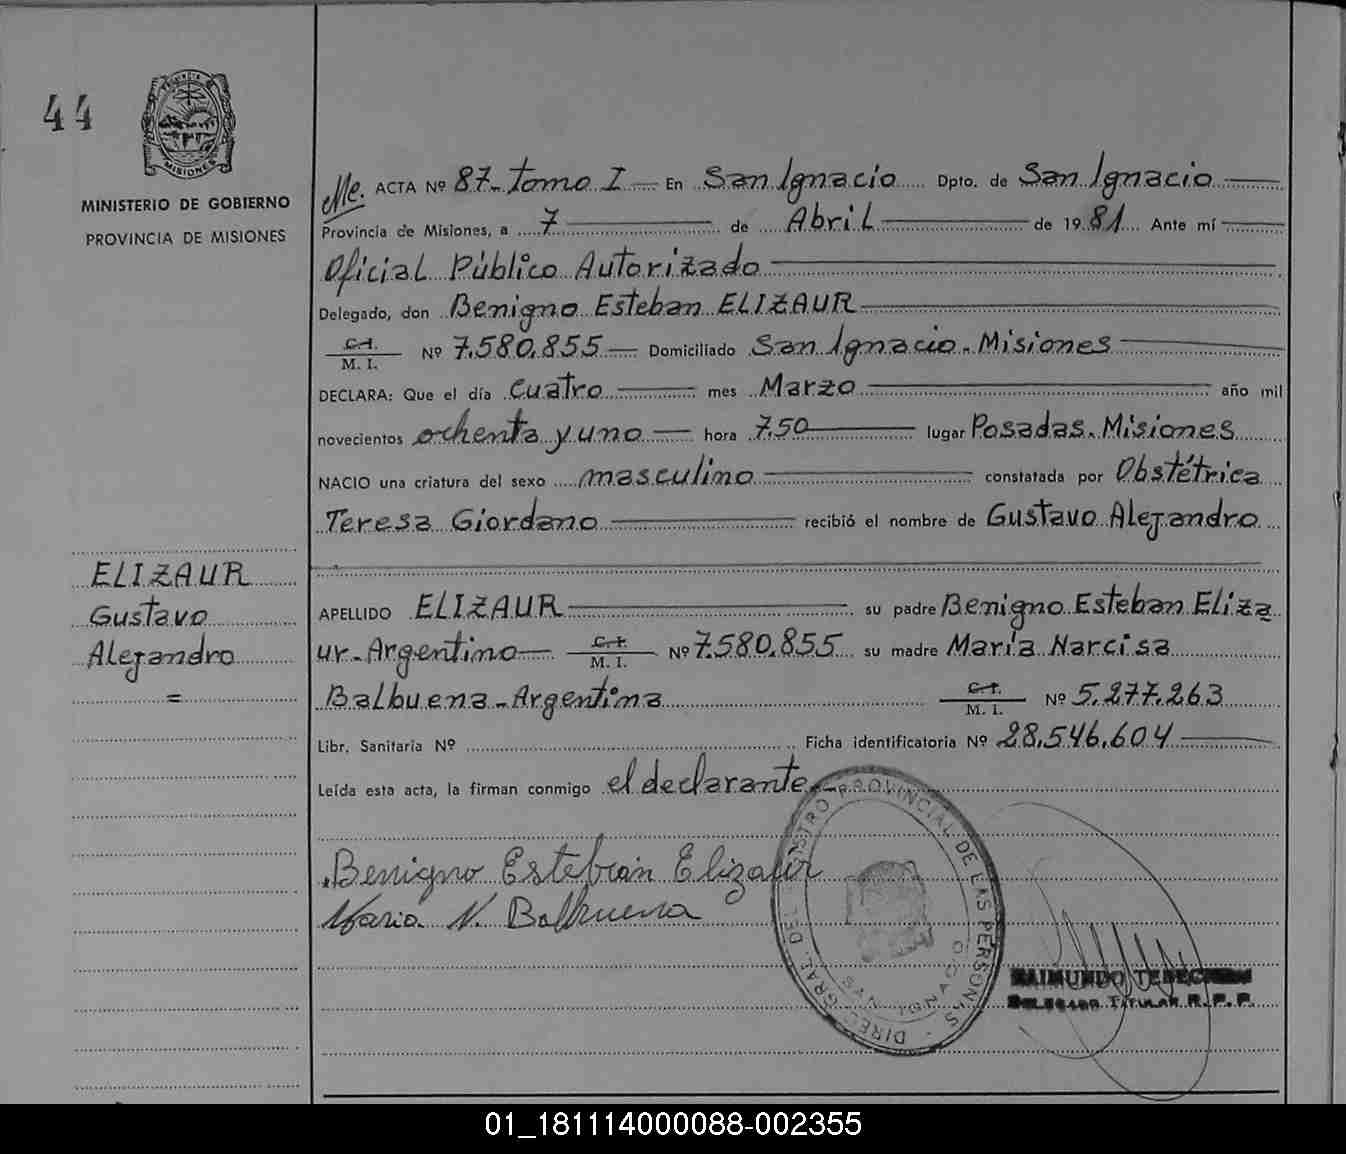 44
PROVINCIA DE
MISIONES
MINISTERIO DE GOBIERNO
PROVINCIA DE MISIONES
ELIZAUR
Gustavo
Alejandro
=
Me. ACTA Nº 87- Tomo I — En San Ignacio Dpto. de San Ignacio
Provincia de Misiones, a 7 de Abril de 1981. Ante mí
Oficial Público Autorizado
Delegado, don Benigno Esteban ELIZAUR
C. I.
M. I. Nº 7.580.855 — Domiciliado San Ignacio - Misiones
DECLARA: Que el día cuatro mes Marzo año mil
novecientos ochenta y uno — hora 7.50 lugar Posadas. Misiones
NACIO una criatura del sexo masculino constatada por Obstétrica
Teresa Giordano recibió el nombre de Gustavo Alejandro
APELLIDO ELIZAUR su padre Benigno Esteban Eliza
ur - Argentino — C. I. M. I. Nº 7.580.855 su madre María Narcisa
Balbuena - Argentina C. I. M. I. Nº 5.277.263
Libr. Sanitaria Nº Ficha identificatoria Nº 28.546.604
Leída esta acta, la firman conmigo el declarante.-
Benigno Esteban Elizaur
Maria N. Balbuena
DIREC. GRAL. DEL REGISTRO PROVINCIAL DE LAS PERSONAS
SAN IGNACIO
RAIMUNDO
DELEGADO TITULAR R. P. P.
01_181114000088-002355